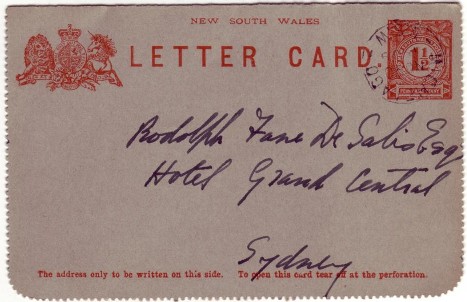 NEW SOUTH WALES
LETTER CARD.
1½
Rodolph Fane De Salis Esq
Hotel Grand Central
Sydney
The address only to be written on this side. To open this card tear off at the perforation.